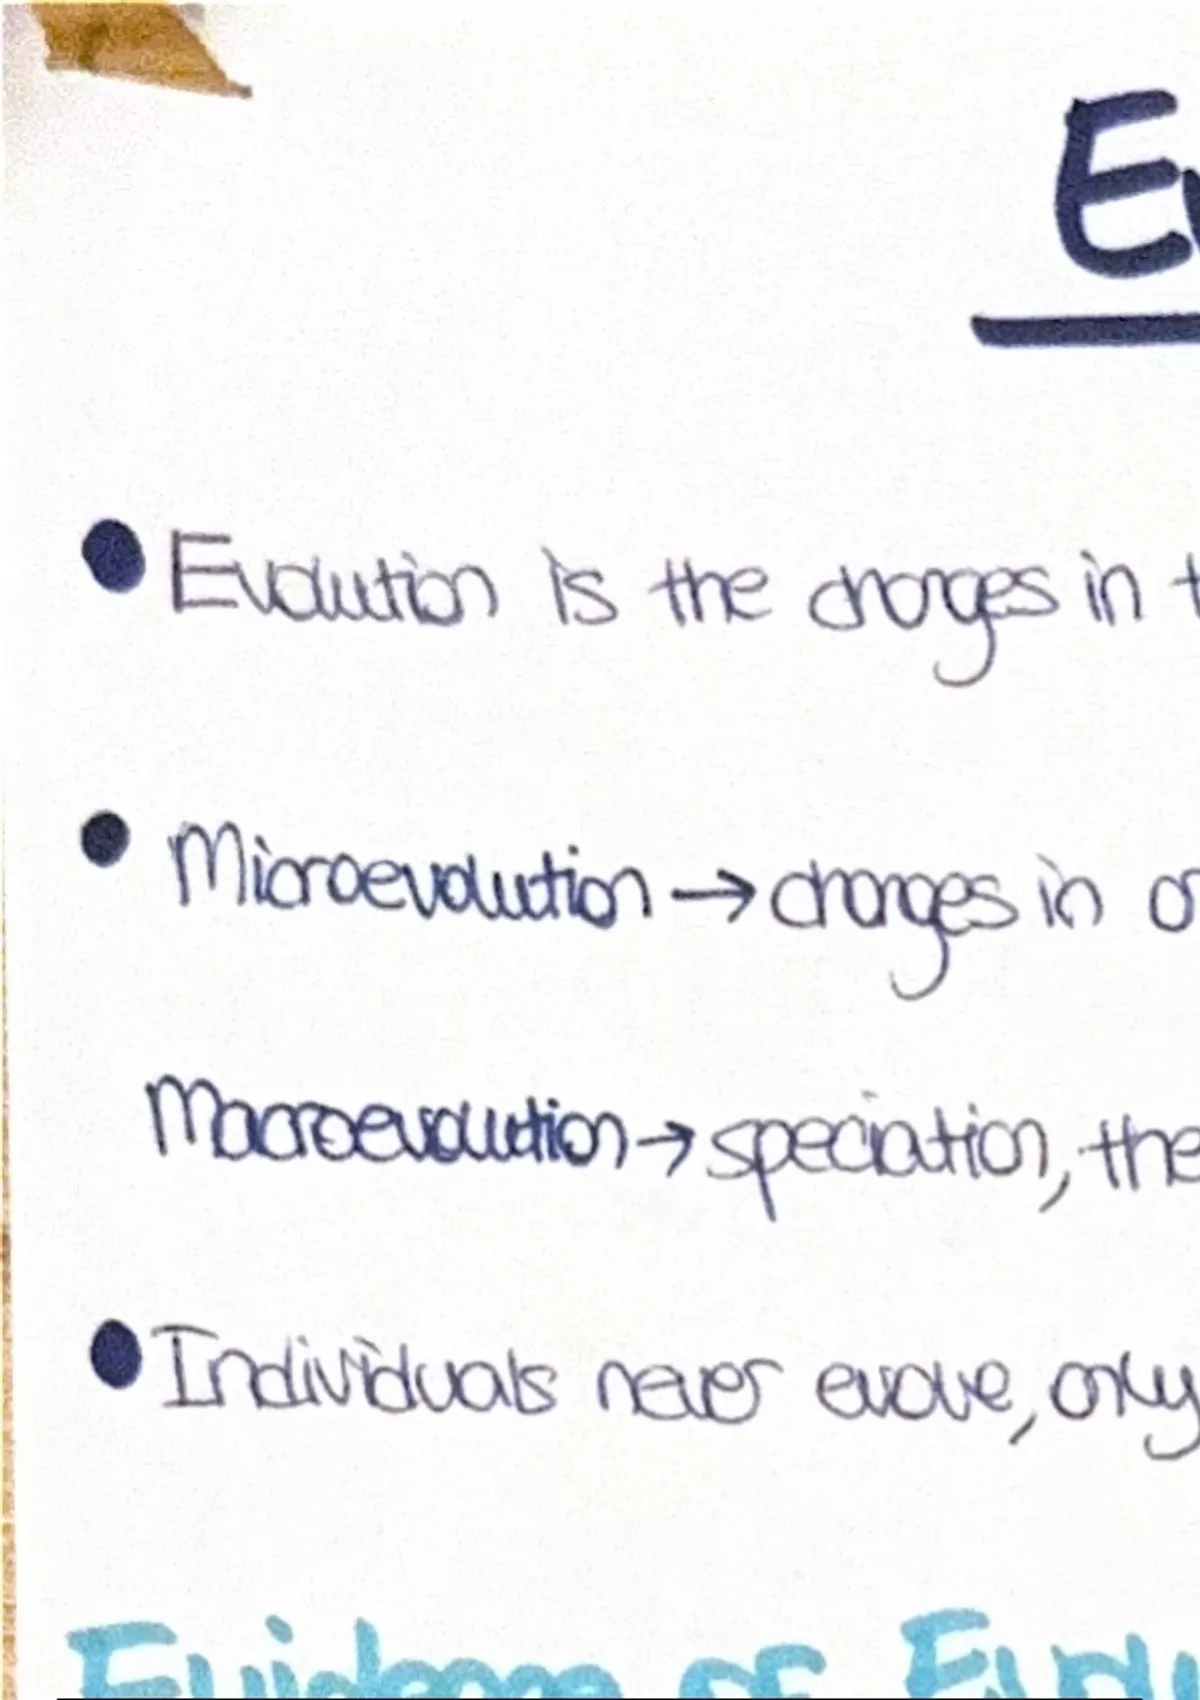 Ev
• Evolution is the changes in t
• Microevolution → changes in or
Macroevolution → speciation, the
• Individuals never evolve, only
Evidence of Evolu